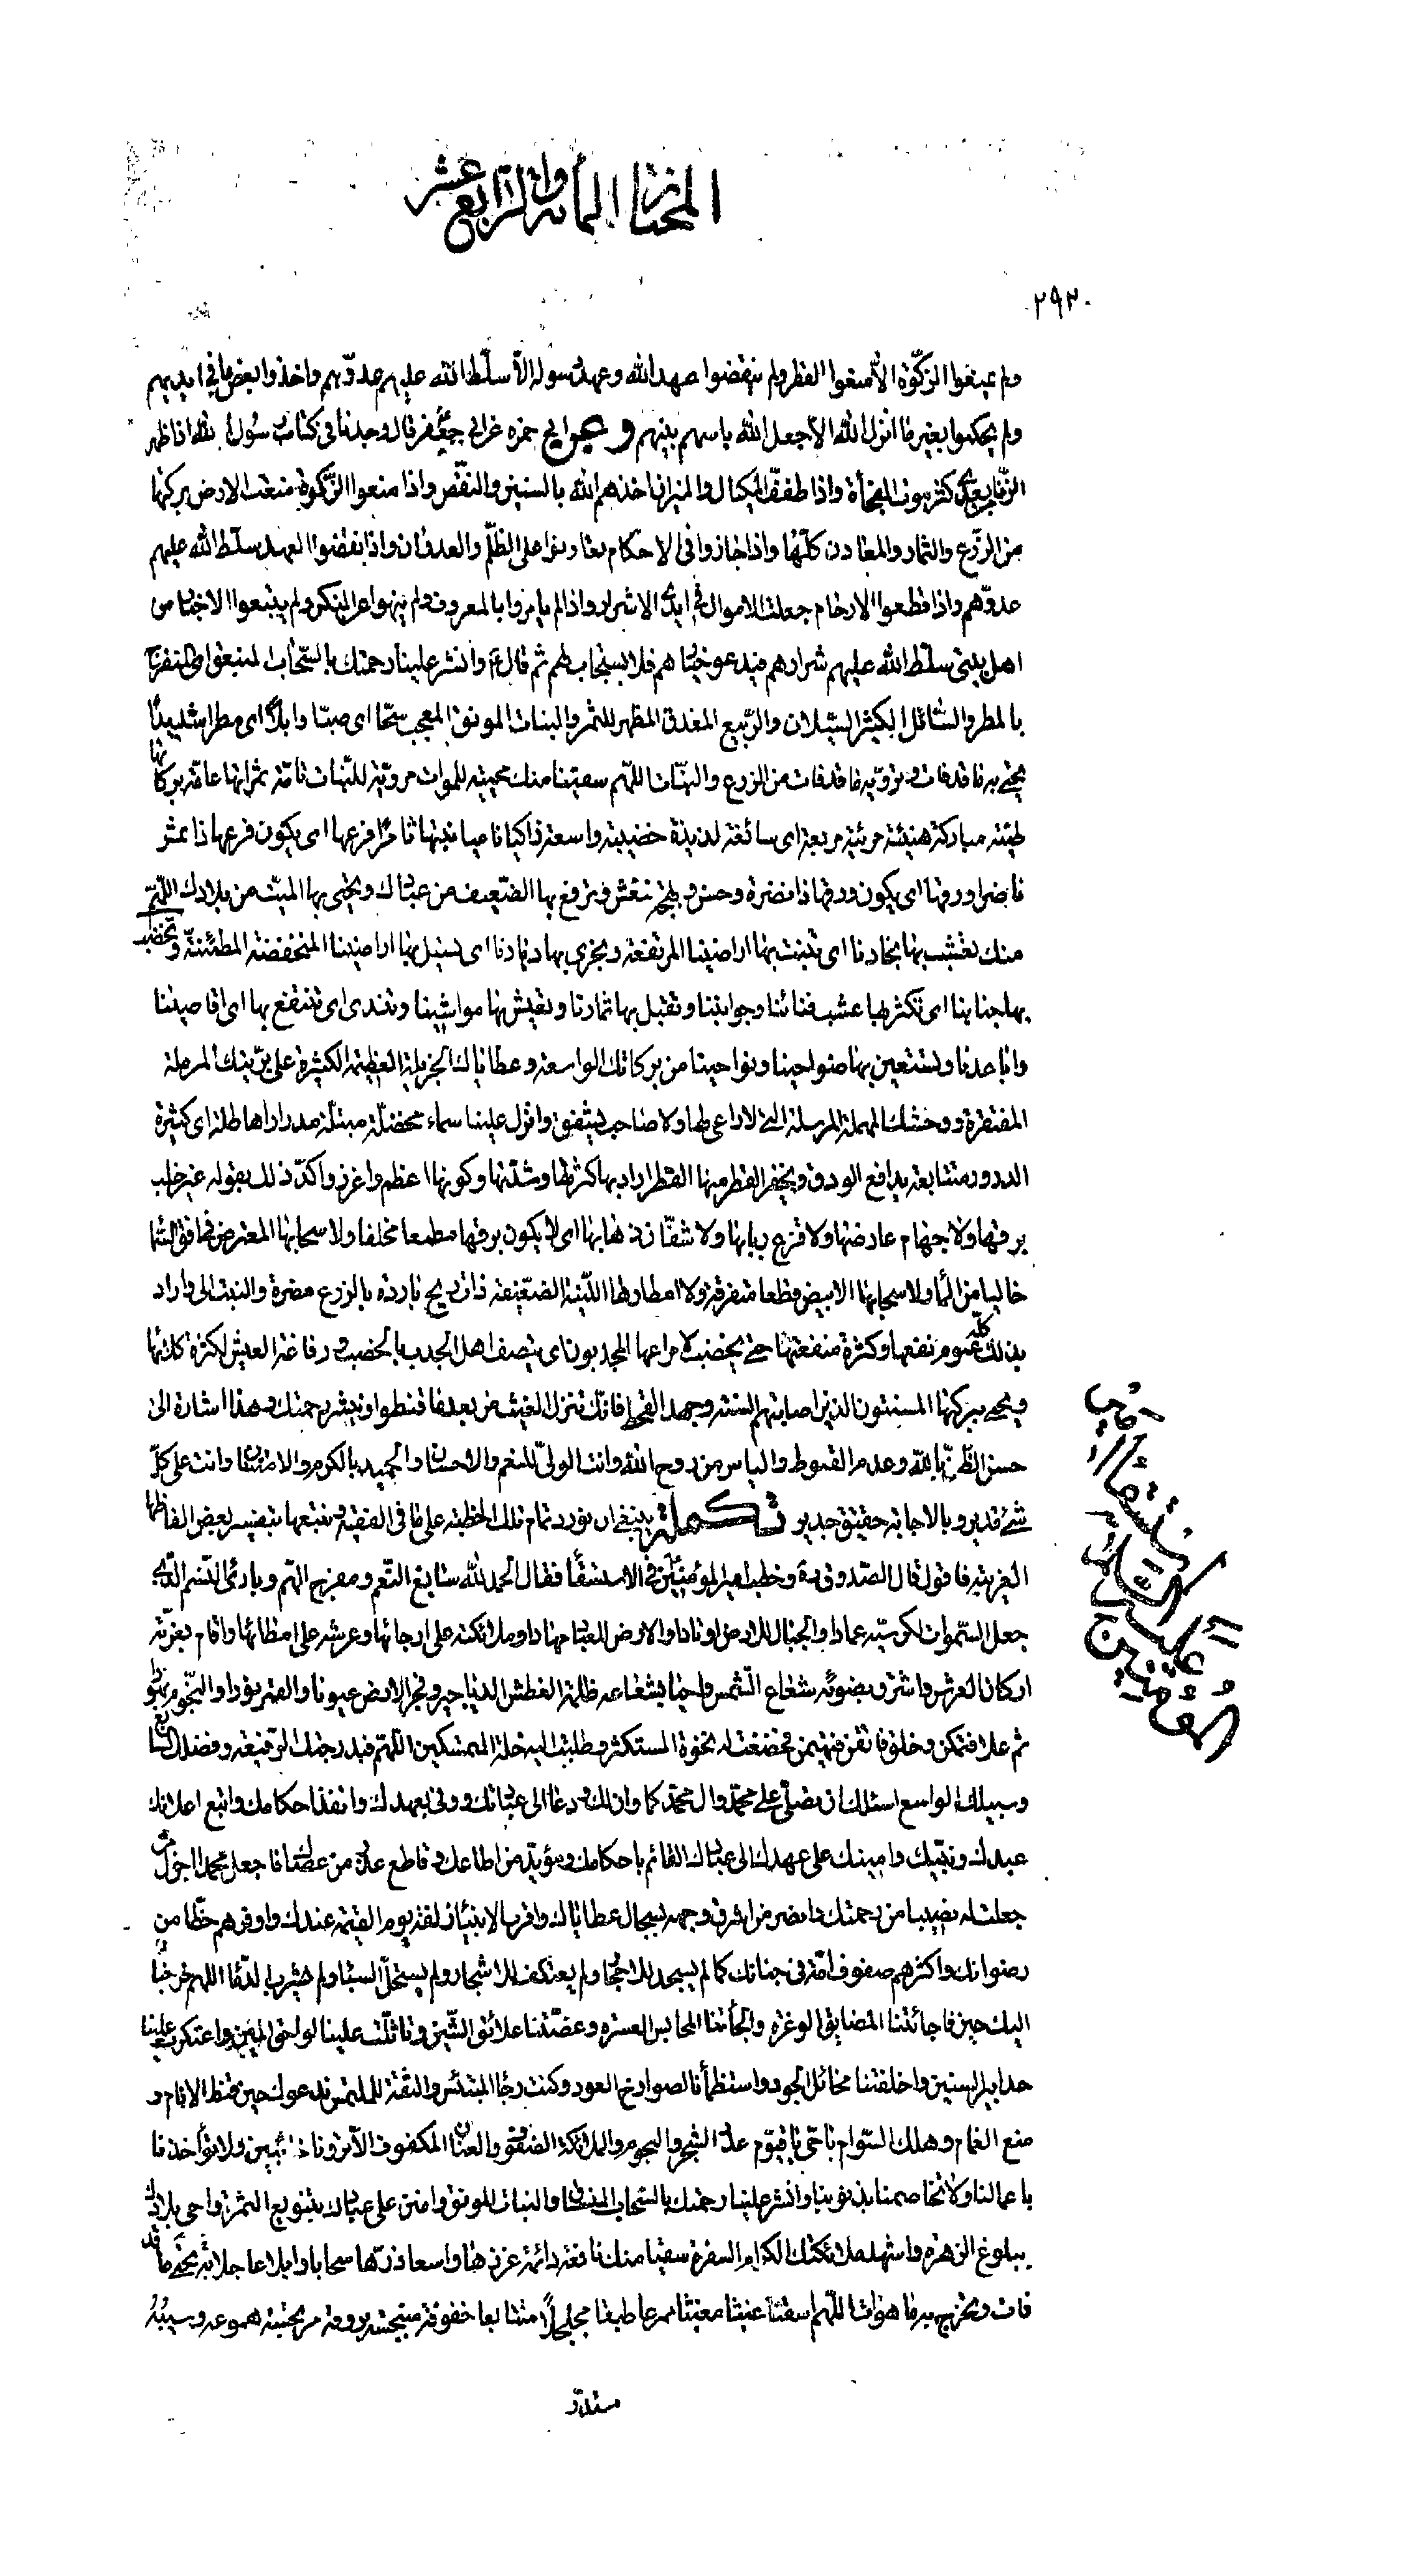 المختار المأة والرابع عشر
٢٩٣
ولم يمنعوا الزكوة الا منعوا القطر ولم ينقضوا عهد الله وعهد رسوله الا سلّط الله عليهم عدوّهم واخذوا بعض ما في ايديهم
ولم يحكموا بغير ما انزل الله الا جعل الله باسهم بينهم و عن ابي حمزه عن ابي جعفر قال وجدنا في كتاب رسول الله اذا ظهر
الزنا من بعدى كثر موت الفجأة واذا طفف المكيال والميزان اخذهم الله بالسنين والنقص واذا منعوا الزكوة منعت الارض بركتها
من الزرع والثمار والمعادن كلّها واذا جاروا في الاحكام تعاونوا على الظلم والعدوان واذا نقضوا العهد سلّط الله عليهم
عدوّهم واذا قطعوا الارحام جعلت الاموال في ايدى الاشرار واذا لم يامروا بالمعروف ولم ينهوا عن المنكر ولم يتبعوا الاخيار من
اهل بيتي سلّط الله عليهم شرارهم فيدعو خيارهم فلا يستجاب لهم ثم قال وانشر علينا رحمتك بالسّحاب المنبعق اى المنفرج
بالمطر والسائل الكثير السّيلان والرّبيع المغدق المظهر للثمر والنبات المونق المعجب سحّا اى صبّا وابلاً اى مطرا شديدًا
تحيى به ما قد مات وتردّ به ما قد فات من الزرع والنبات اللّهم سقيا منك محيية للموات مروية للنبات تامّة ثمراتها عامّة بركاتها
طيّبة مباركة هنيئة مريئة مريعة اى سائغة لذيذة خصيبة واسعة زاكيا ناميا نبتها ثامرًا فرعها اى يكون فرعها ذا ثمر
ناضرا ورقها اى يكون ورقها ذا نضرة وحسن و تنعش وترفع بها الضّعيف من عبادك وتحيى بها الميّت من بلادك اللّهم
منك تعشب بها نجادنا اى تنبت بها اراضينا المرتفعة وتجري بها وهادنا اى تسيل بها اراضينا المنخفضة المطمئنّة وتخصب
بها جنابنا اى تكثر بها عشب فنائنا وجوانبنا وتقبل بها ثمارنا وتعيش بها مواشينا وتندى اى تنتفع بها اى اقاصينا
واباعدنا وتستعين بها ضواحينا ونواحينا من بركاتك الواسعة وعطاياك الجزيلة العظيمة الكثيرة على بريّتك المرملة
المفتقرة ووحشك المهملة المرسلة التى لا راعى لها ولا صاحب يشفق وانزل علينا سماء مخضلّة مبتلّة مدرارا هاطلة اى كثيرة
الدرور متتابعة يدافع الودق ويحفز القطر منها القطر اراد بها كثرتها وشدّتها وكونها اعظم واغزر واكدّ ذلك بقوله غير خلّب
برقها ولا جهام عارضها ولا قزع ربابها ولا شفّان ذهابها اى لا يكون برقها مطمعا مخلفا ولا سحابها المعترض في افق السّما
خاليا من الماء ولا سحابها الابيض قطعا متفرقة ولا امطارها الليّنة الضّعيفة ذات ريح باردة بالزرع مضرة والنبت اراد
بذلك كلّه عموم نفعها وكثرة منفعتها حتى يخصب لامراعها المجدبون اى يتصف اهل الجدب بالخصب ورفاغة العيش لكثرة كلائها
ويحيى ببركتها المسنتون الذين اصابتهم السّنة وجهد القحط فانّك تنزل الغيث من بعد ما قنطوا وتنشر رحمتك وهذا اشارة الى
حسن الظنّ بالله وعدم القنوط والياس من روح الله وانت الولىّ للنعم والاحسان والحميد بالكرم والامتنان وانت على كلّ
شئ قدير وبالاجابة حقيق جدير تكملة ينبغى ان نورد تمام تلك الخطبة على ما في الفقيه ونتبعها بتفسير بعض الفاظها
الغريبة فاقول قال الصّدوق ره وخطب امير المؤمنين في الاستسقاء فقال الحمد لله سابغ النّعم ومفرّج الهمّ وبارئ النّسم الّذى
جعل السّموات لكرسيّه عمادا والجبال للارض اوتادا والارض للعباد مهادا وملائكته على ارجائها وعرشه على امطائها واقام بعزّته
اركان العرش واشرق بضوئه شعاع الشّمس واحيا بشعاعه ظلمة الغطش الدياجير وفجّر الارض عيونا والقمر نورا والنّجوم بهورا
ثم علا فتمكّن وخلق فاتقن فهيمن فخضعت له نخوة المستكبر وطلبت اليه خلّة المتمسكين اللّهم فبدرجتك الرفيعة وفضلك السّابغ
وسبيلك الواسع اسئلك ان تصلّى على محمّد وال محمّد كما دان لك ودعا الى عبادتك ووفى بعهدك وانفذ احكامك واتبع اعلامك
عبدك ونبيّك وامينك على عهدك الى عبادك القائم باحكامك ومؤيّد من اطاعك وقاطع عذر من عصاك فاجعل محمدا اجزل من
جعلت له نصيبا من رحمتك وانضر من اشرق وجهه بسجال عطاياك واقرب الانبياء زلفة يوم القيمة عندك واوفرهم حظّا من
رضوانك واكثرهم صفوف امّة في جنانك كما لم يسجد للاحجار ولم يعتكف للاشجار ولم يستحلّ السباء ولم يشرب الدّماء اللهم خرجنا
اليك حين فاجائتنا المضايق الوعرة والجأتنا المحابس العسرة وعضّتنا علائق الشّين وتاثّلت علينا لواحق المين واعتكرت علينا
حدابير السنين واخلفتنا مخائل الجود واستظمأنا لصوارخ العود وكنت رجاء المبتئس والثقة للملتمس ندعوك حين قنط الانام و
منع الغمام وهلك السّوام يا حىّ يا قيّوم عدد الشجر والنجوم والملائكة الصّفوف والعنان المكفوف الا تردّنا خائبين ولا تؤاخذنا
باعمالنا ولا تخاصمنا بذنوبنا وانشر علينا رحمتك بالسّحاب والنبات المونق وامنن على عبادك بتنويع الثمرة واحى بلادك
ببلوغ الزهرة واشهد ملائكتك الكرام السفرة سقيا منك نافعة دائمة غزرها واسعا درّها سحابا وابلا عاجلا تحيى به ما قد
فات وتخرج به ما هو ات اللهم اسقنا غيثا مغيثا ممرعا طبقا مجلجلاً متتابعا خفوقه منبجسة بروقه مرتجسة هموعه وسيبه
مستدرّ
استسقاء امير المؤمنين عليه السلام